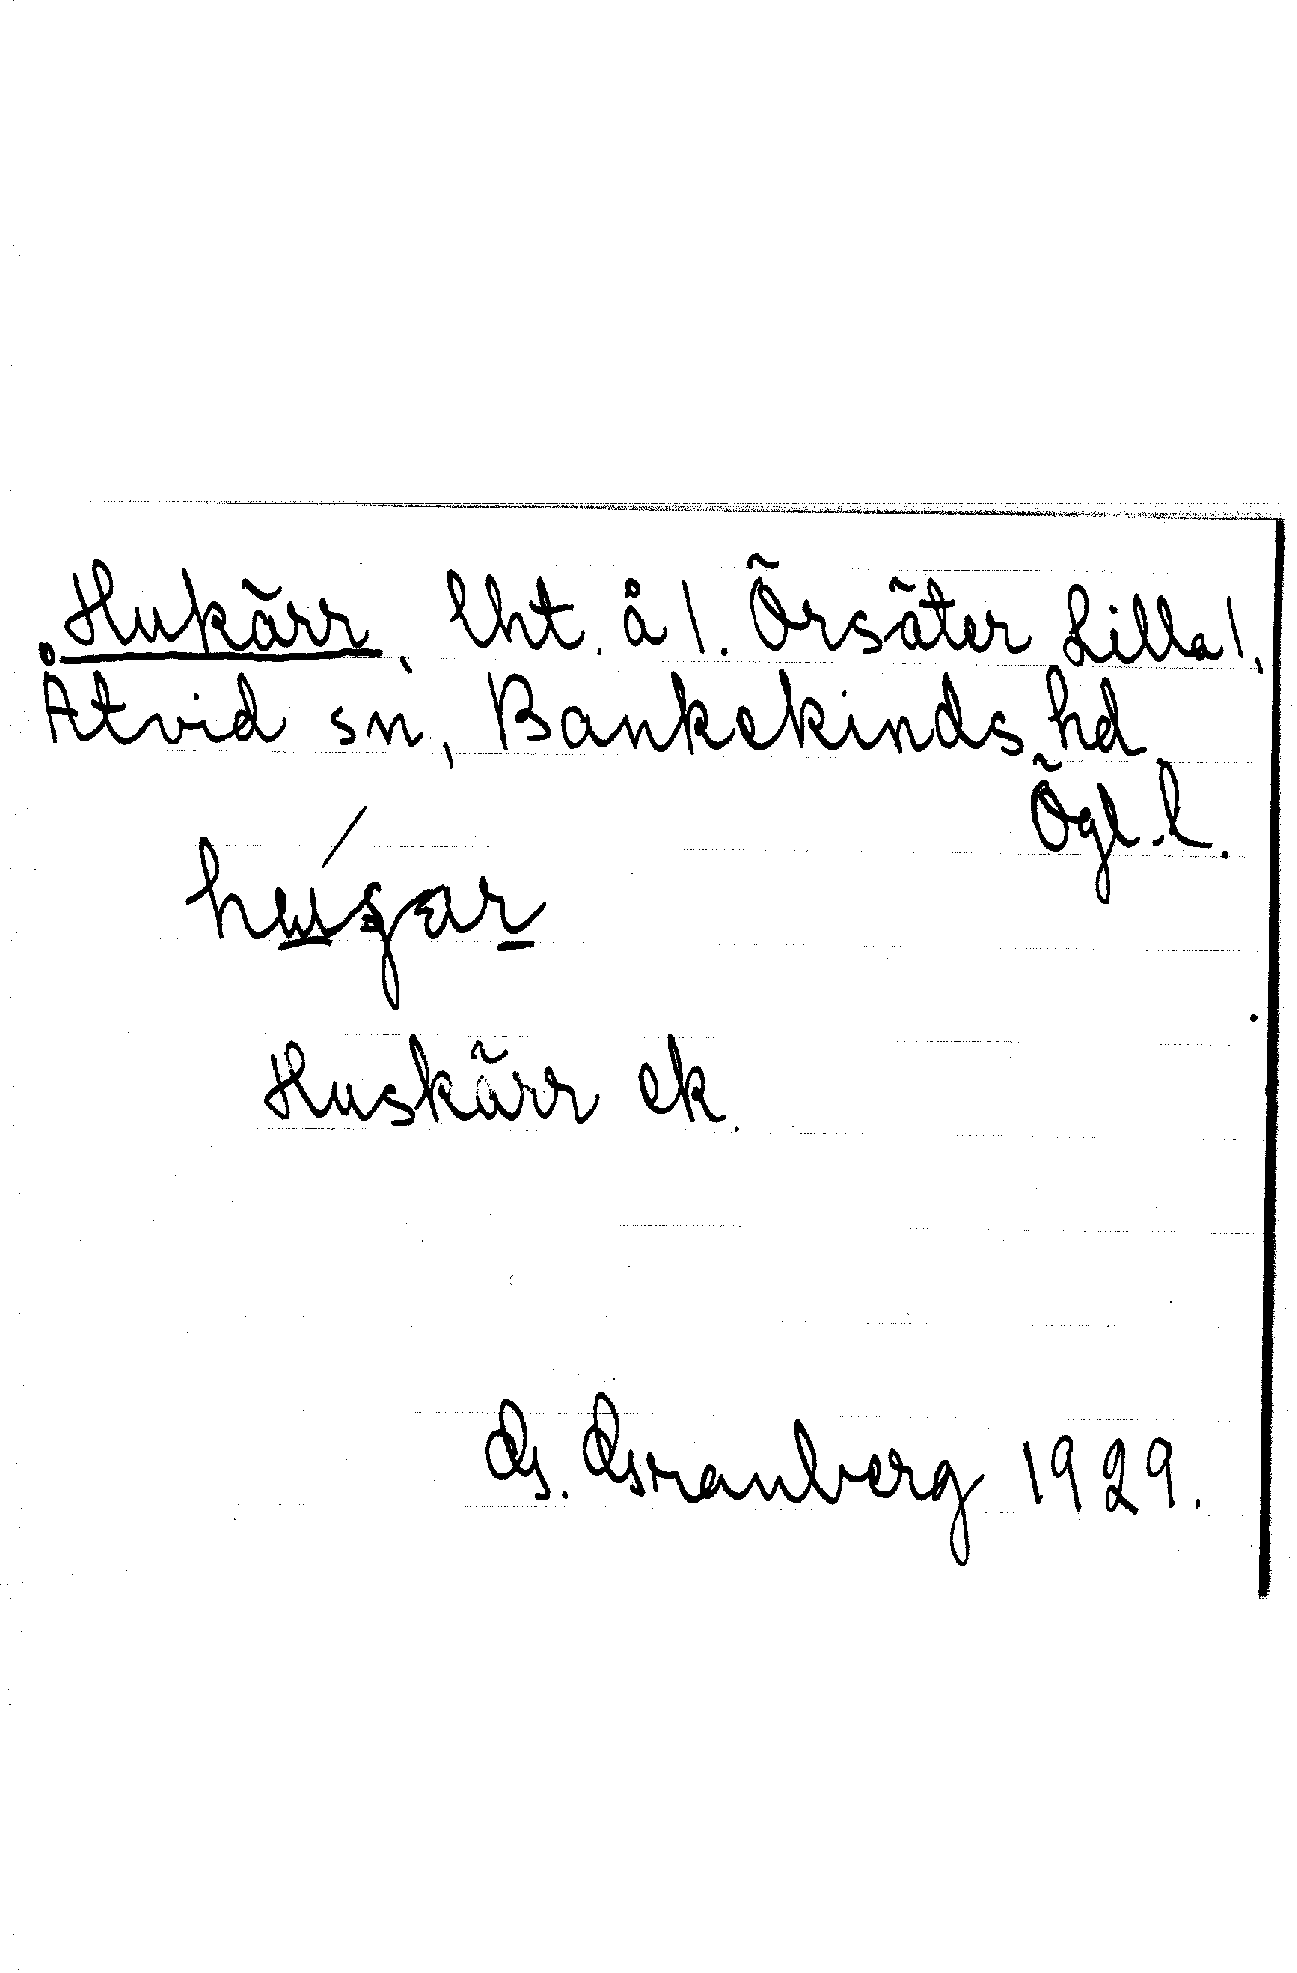 Hukärr, lht. å l. Örsäter Lilla l,
Åtvid sn, Bankekinds hd
Ögl. l.
Huskärr ek.
G. Granberg 1929.